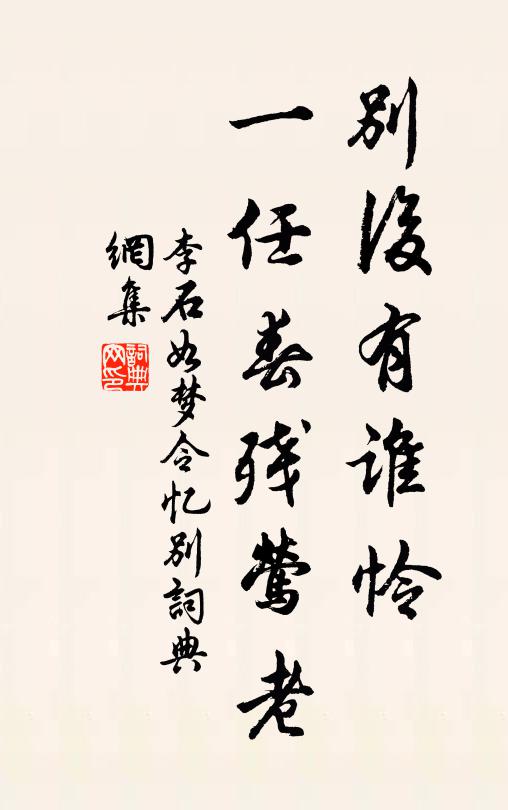 别後有谁怜
一任春残莺老
李石如梦令忆别詞典
網集
詞典网印